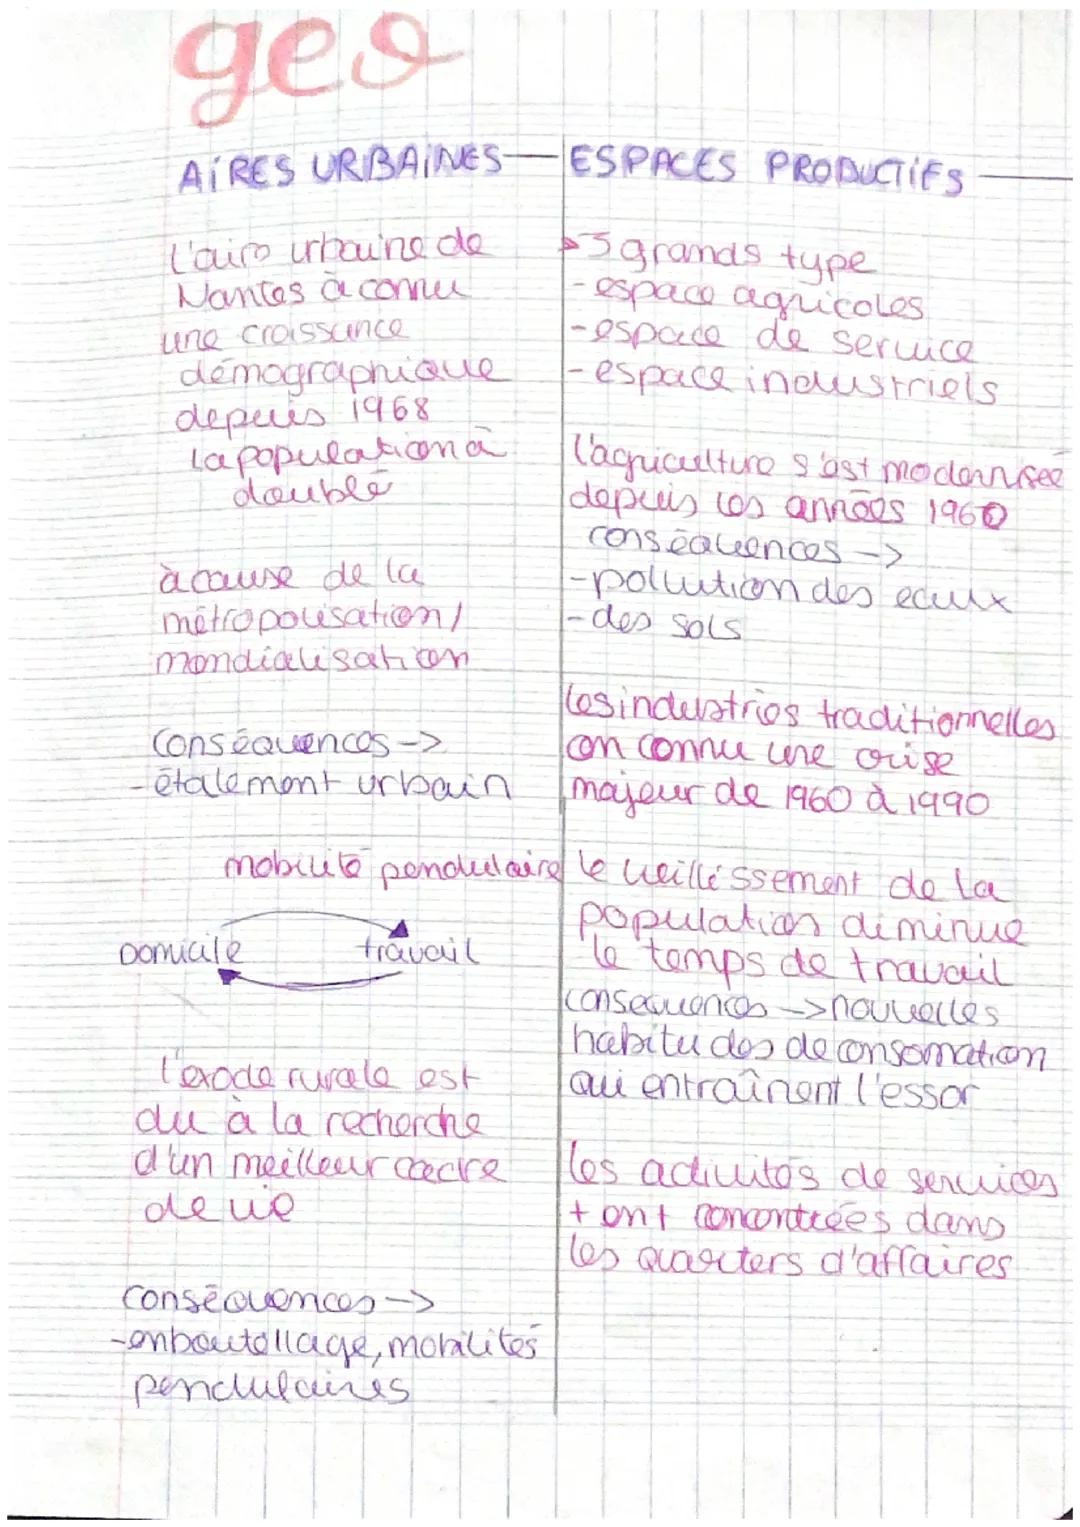 geo
AIRES URBAINES
l'aire urbaine de
Nantes à connu
une croissance
démographique
depuis 1968
la population à
doublé
à cause de la
métropolisation/
mondialisation
conséquences ->
- étalement urbain
mobilité pendulaire
Domicile travail
l'exode rurale est
du à la recherche
d'un meilleur cadre
de vie
conséquences ->
- enbouteillage, mobilités
pendulaires
ESPACES PRODUCTIFS
3 grands type
- espace agricoles
- espace de service
- espace industriels
l'agriculture s'est modernisée
depuis les années 1960
conséquences ->
- pollution des eaux
- des sols
les industries traditionnelles
on connu une crise
majeur de 1960 à 1990
le veillissement de la
population diminue
le temps de travail
consequences -> nouvelles
habitudes de consomation
qui entraînent l'essor
les activités de services
+ ont concentrées dans
les quarters d'affaires